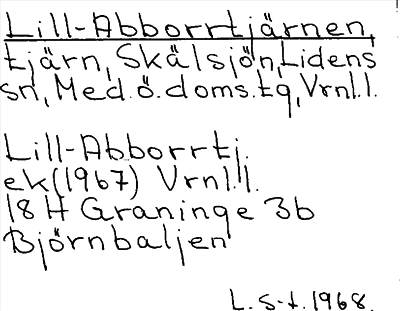 Lill-Abborrtjärnen,
tjärn, Skälsjön, Lidens
sn, Med.ö.doms.tg, Vrnl.l.
Lill-Abborrtj.
ek(1967) Vrnl.l.
18 H Graninge 3b
Björnbaljen
L. S-t. 1968.